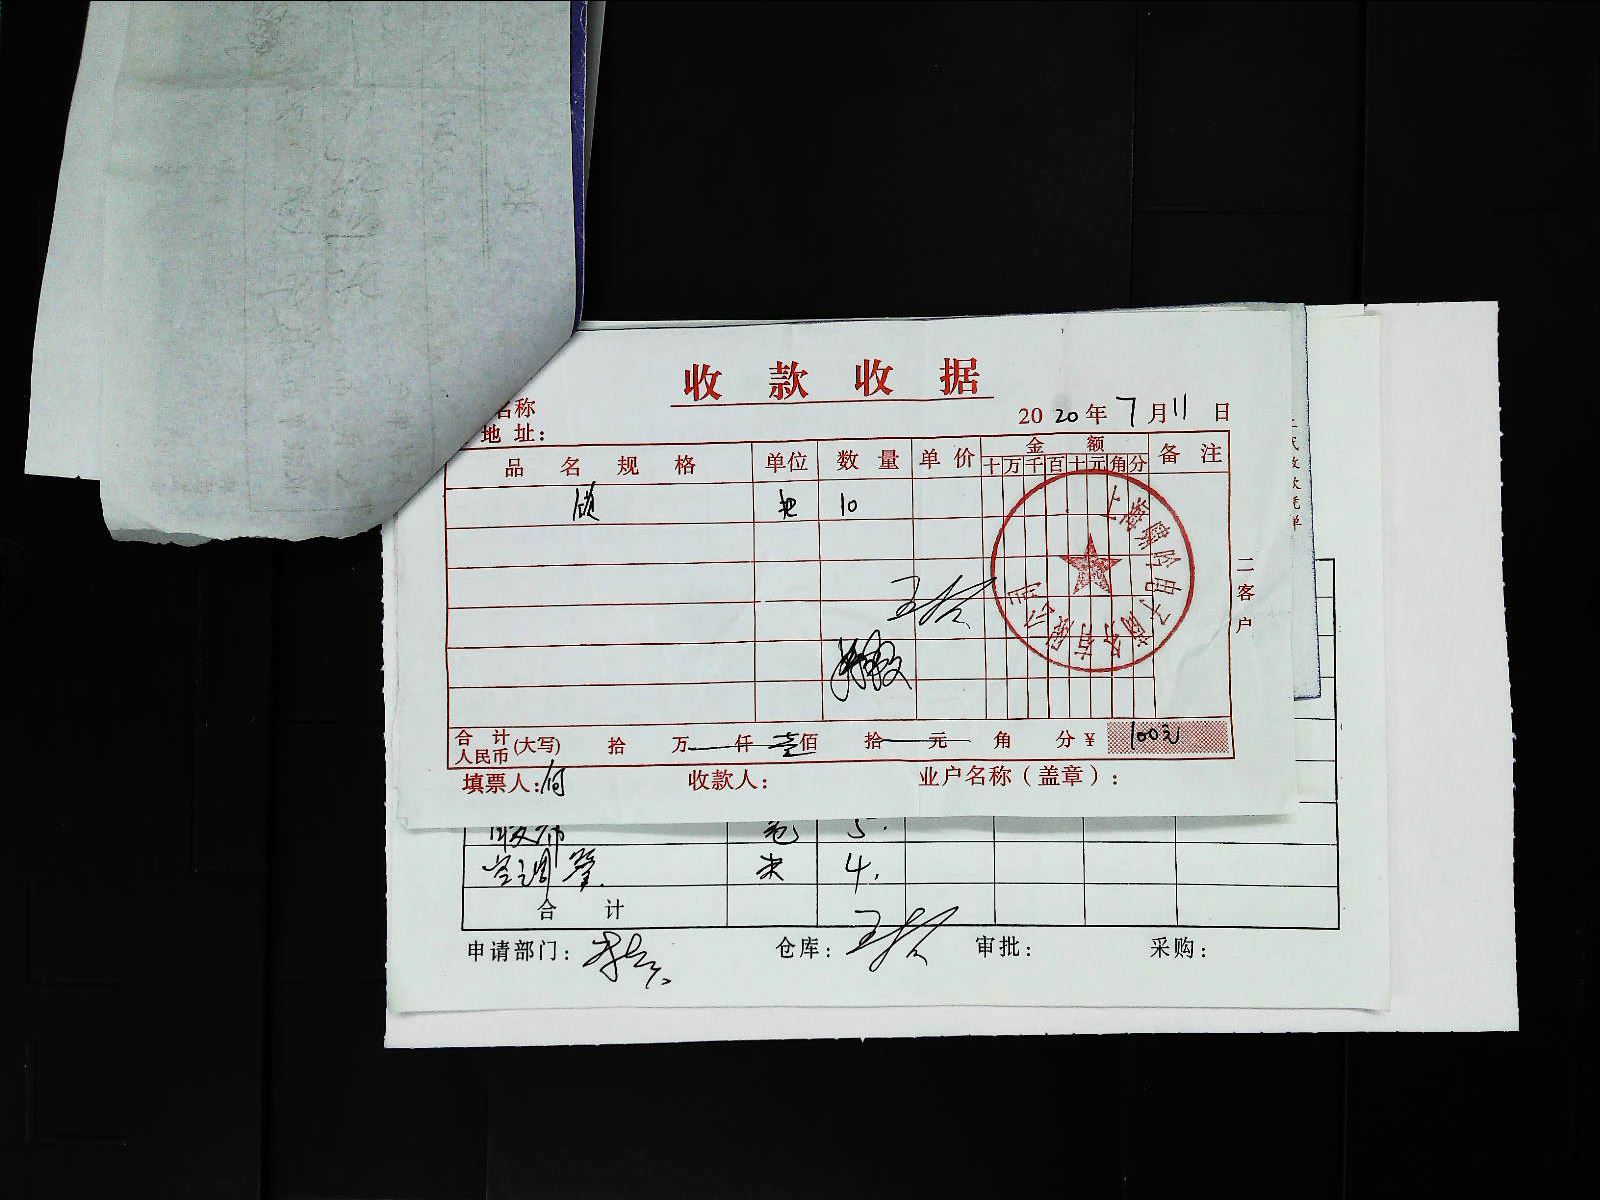 收款收据
名称
地址：
2020年7月11日
品名规格 单位 数量 单价 金额 备注
十万千百十元角分
锁 把 10
王
上海 电子商务有限公司
二客户
合计人民币(大写) 拾 万 仟 壹佰 拾 元 角 分 ¥ 100元
填票人：何 收款人： 业户名称（盖章）：
胶布 卷 5.
空调管 米 4.
合计
申请部门： 仓库：王 审批： 采购：